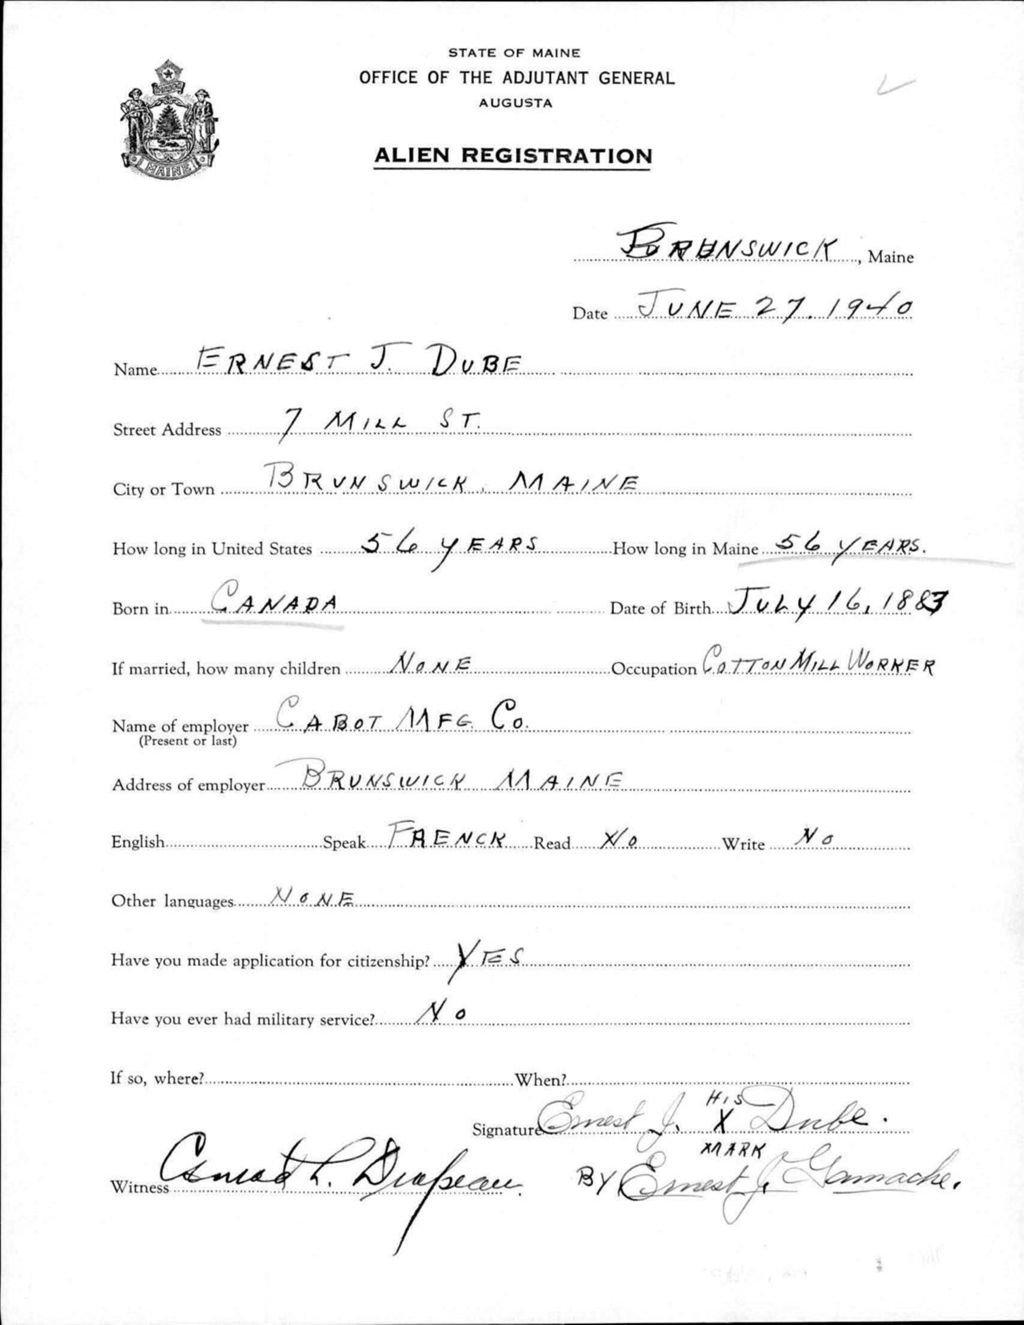 STATE OF MAINE
OFFICE OF THE ADJUTANT GENERAL
AUGUSTA
ALIEN REGISTRATION
MAINE
BRUNSWICK, Maine
Date JUNE 27. 1940
Name ERNEST J. DUBE
Street Address 7 MILL ST.
City or Town BRUNSWICK, MAINE
How long in United States 56 YEARS How long in Maine 56 YEARS.
Born in CANADA Date of Birth JULY 16, 1883
If married, how many children NONE Occupation COTTON MILL WORKER
Name of employer CABOT MFG. Co.
(Present or last)
Address of employer BRUNSWICK MAINE
English Speak FRENCK Read No Write No
Other languages NONE
Have you made application for citizenship? YES
Have you ever had military service? No
If so, where? When?
Signature Ernest J. HIS X MARK Dube.
Witness Conrad L. Drapeau BY Ernest J. Gamache.